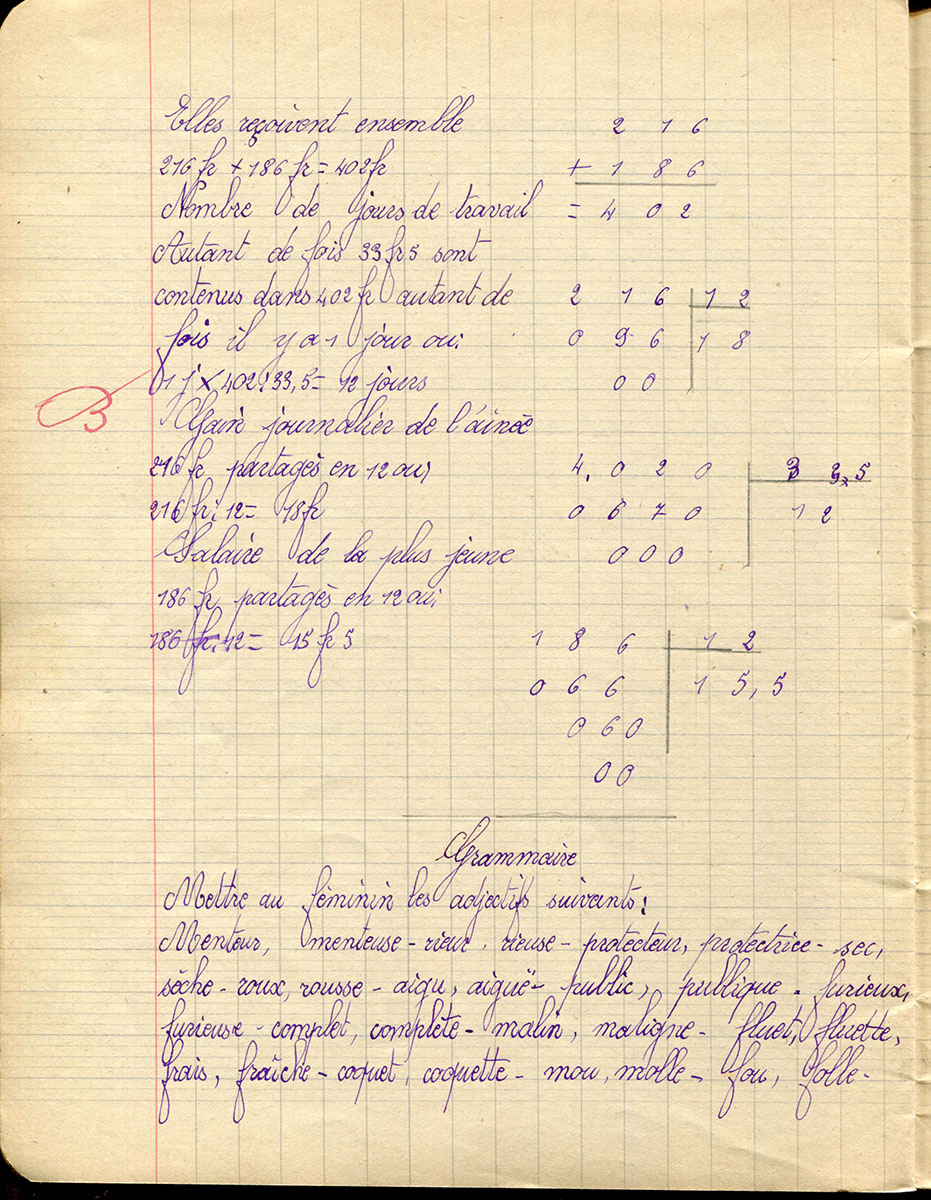 Elles reçoivent ensemble
216 fr + 186 fr = 402 fr
Nombre de jours de travail
Autant de fois 33 fr 5 sont
contenus dans 402 fr autant de
fois il y a 1 jour ou:
1 j × 402 : 33,5 = 12 jours
Gain journalier de l'ainée
216 fr partagés en 12 ou;
216 fr : 12 = 18 fr
Salaire de la plus jeune
186 fr partagés en 12 ou;
186 fr : 12 = 15 fr 5
B
2 1 6
+ 1 8 6
= 4 0 2
2 1 6 | 1 2
0 9 6 | 1 8
0 0
4, 0 2 0 | 3 3,5
0 6 7 0 | 1 2
0 0 0
1 8 6 | 1 2
0 6 6 | 1 5, 5
0 6 0
0 0
Grammaire
Mettre au féminin les adjectifs suivants:
Menteur, menteuse - rieur, rieuse - protecteur, protectrice - sec,
sèche - roux, rousse - aigu, aiguë - public, publique - furieux,
furieuse - complet, complète - malin, maligne - fluet, fluette,
frais, fraîche - coquet, coquette - mou, molle - fou, folle -